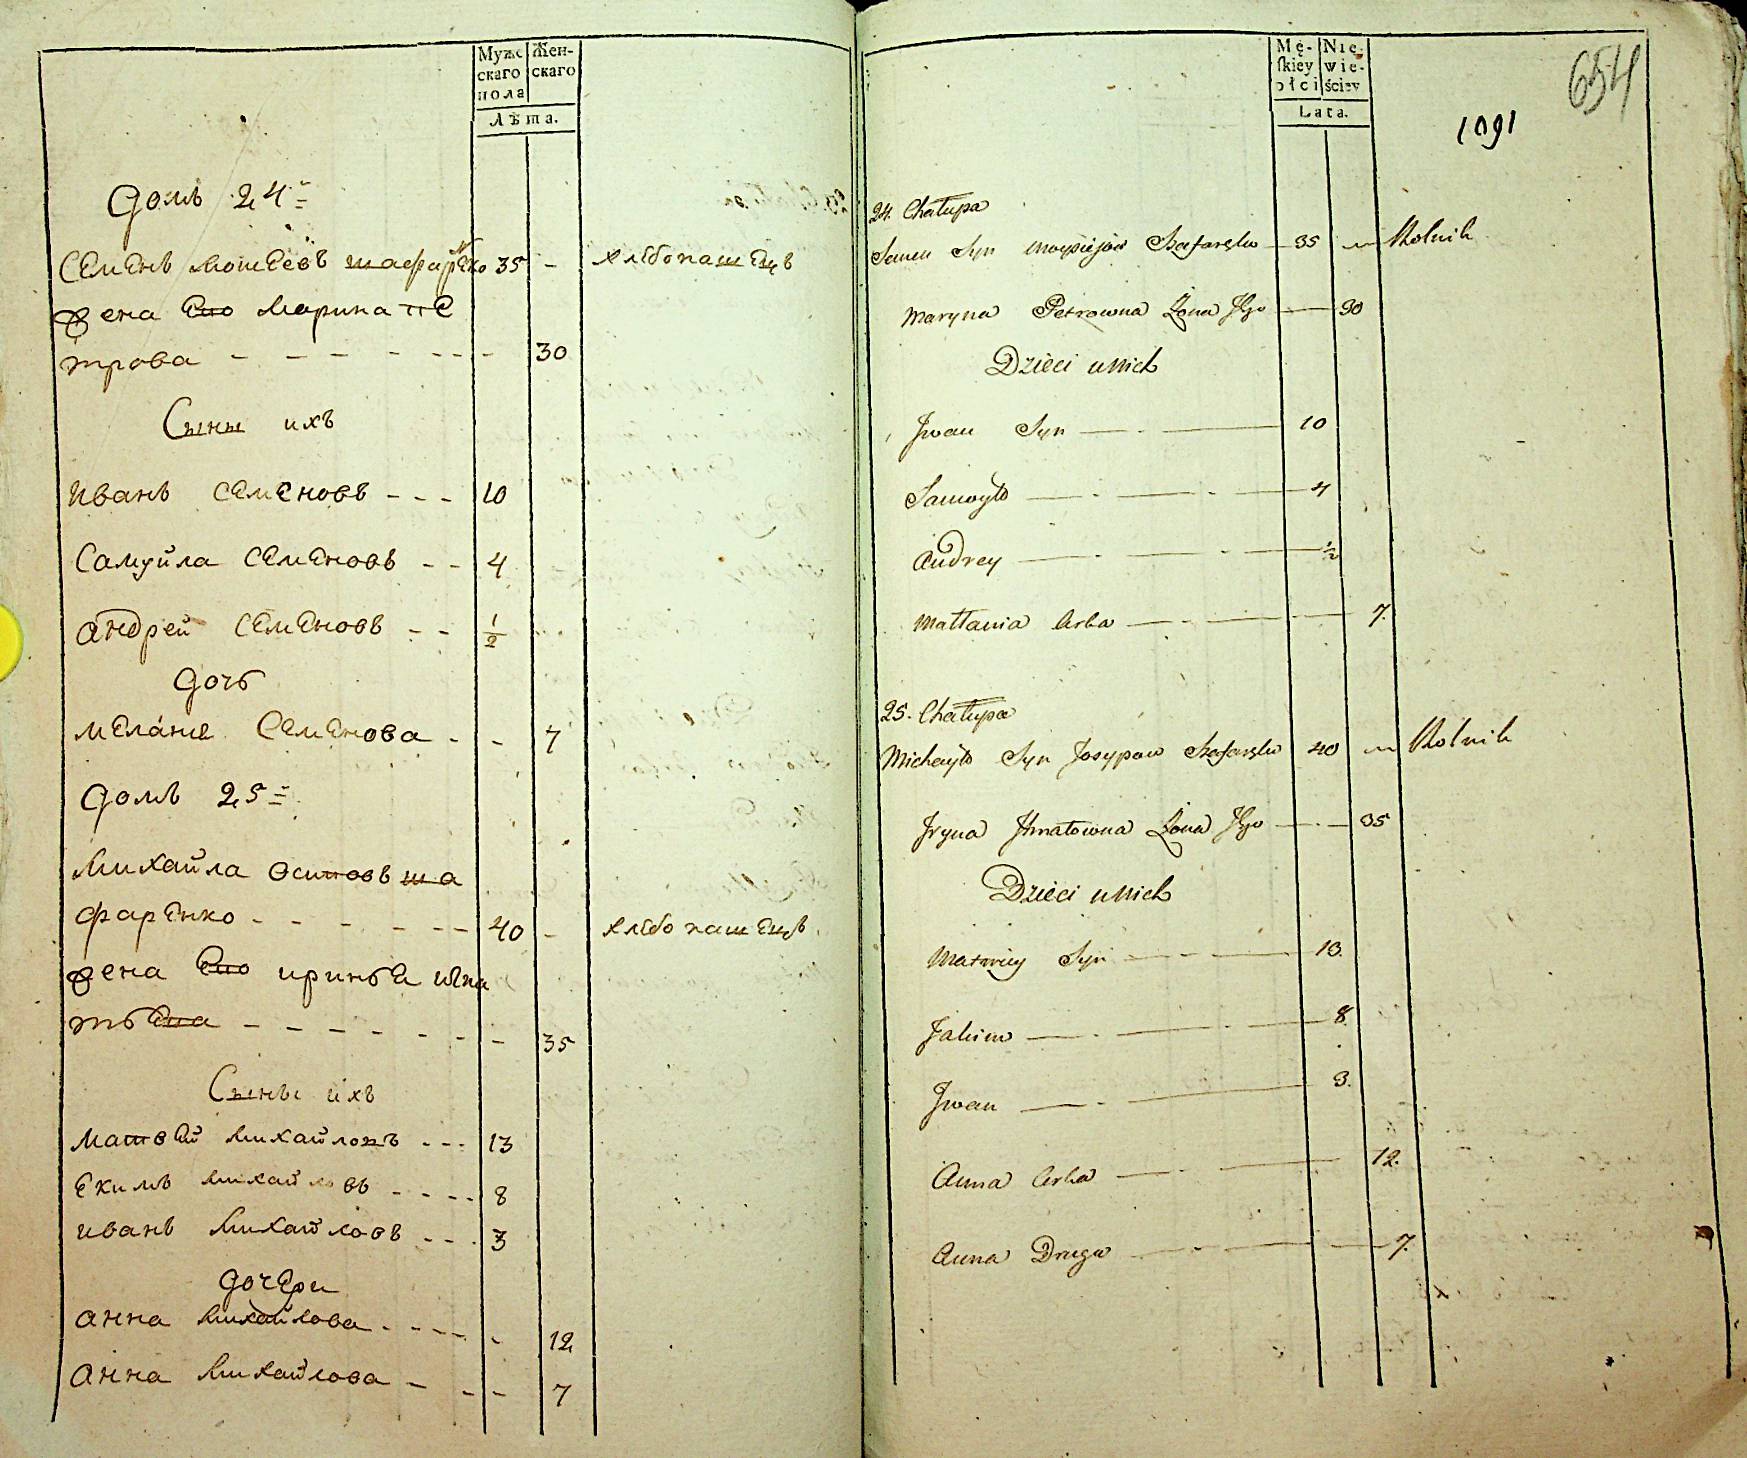 Муже
скаго
пола
Жен-
скаго
Лѣта.
Домъ 24=
Семенъ Мошеевъ шафаренко 35 - хлѣбопашецъ
жена Его Марина пе
трова - - - - - - - 30
Сыны ихъ
Иванъ Семеновъ - - - 10
Самуйла Семеновъ - - 4
Андрей Семеновъ - - 1/2
Дочь
Меланье Семенова - - 7
Домъ 25=
Михайла Осиповъ ша
фаренко - - - - - - 40 - хлѣбопашецъ
жена Его
- - - - - - - 35
Сыны ихъ
Матвей Михайловъ - - - 13
Екимъ Михайловъ - - - - 8
Иванъ Михайловъ - - - 3
Дочери
Анна Михайлова - - - - - 12
Анна Михайлова - - - 7
Mę-
skiey
płci
Nie-
wie-
ściey
Lata.
1091
654
24. Chałupa
Semen Syn Moysiejów Szafareńko — 35 — Rolnik
Maryna Petrowna Żona Jgo — 30
Dzieci u Nich
Jwan Syn — 10
Samoyło — 4
Andrey — 1/2
Małania Córka — 7.
25. Chałupa
Michayło Syn Josypow Szafareńko 40 — Rolnik
Jryna Jhnatowna Żona Jgo — 35
Dzieci u Nich
Matwiey Syn — 13.
Jakim — 8.
Jwan — 3.
Anna Córka — 12.
Anna Druga — 7.